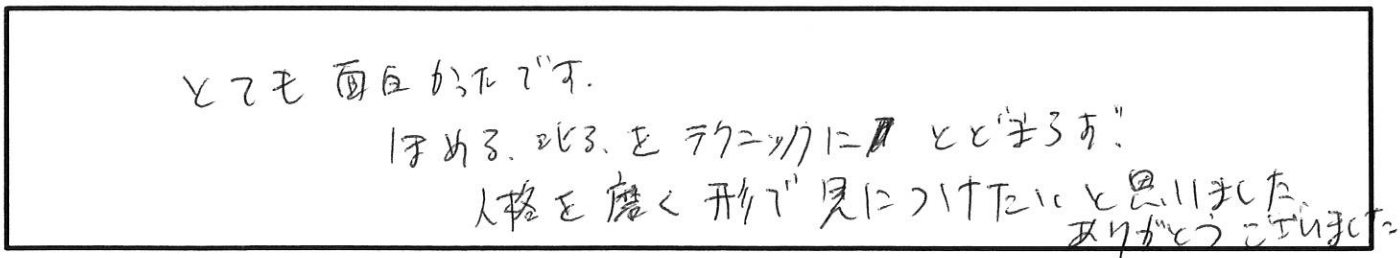 とても面白かったです.
ほめる、叱る、をテクニックにとどまらず、
人格を磨く形で見につけたいと思いました、
ありがとうございました